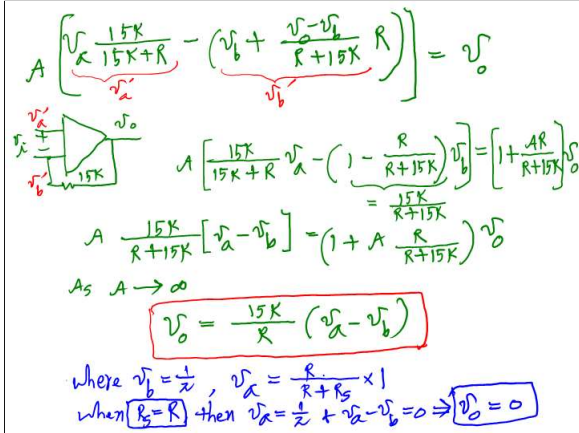 A [ v_a 15K/(15K+R) - ( v_b + (v_o - v_b)/(R+15K) R ) ] = v_o
v_a' v_b'
v_a' v_o
v_i + -
v_b' 15K
A [ 15K/(15K+R) v_a - ( 1 - R/(R+15K) ) v_b ] = [ 1 + AR/(R+15K) ] v_o
= 15K/(R+15K)
A 15K/(R+15K) [ v_a - v_b ] = ( 1 + A R/(R+15K) ) v_o
As A → ∞
v_o = 15K/R ( v_a - v_b )
where v_b = 1/2 , v_a = R/(R+R_s) × 1
when R_s = R then v_a = 1/2 + v_a - v_b = 0 ⇒ v_o = 0